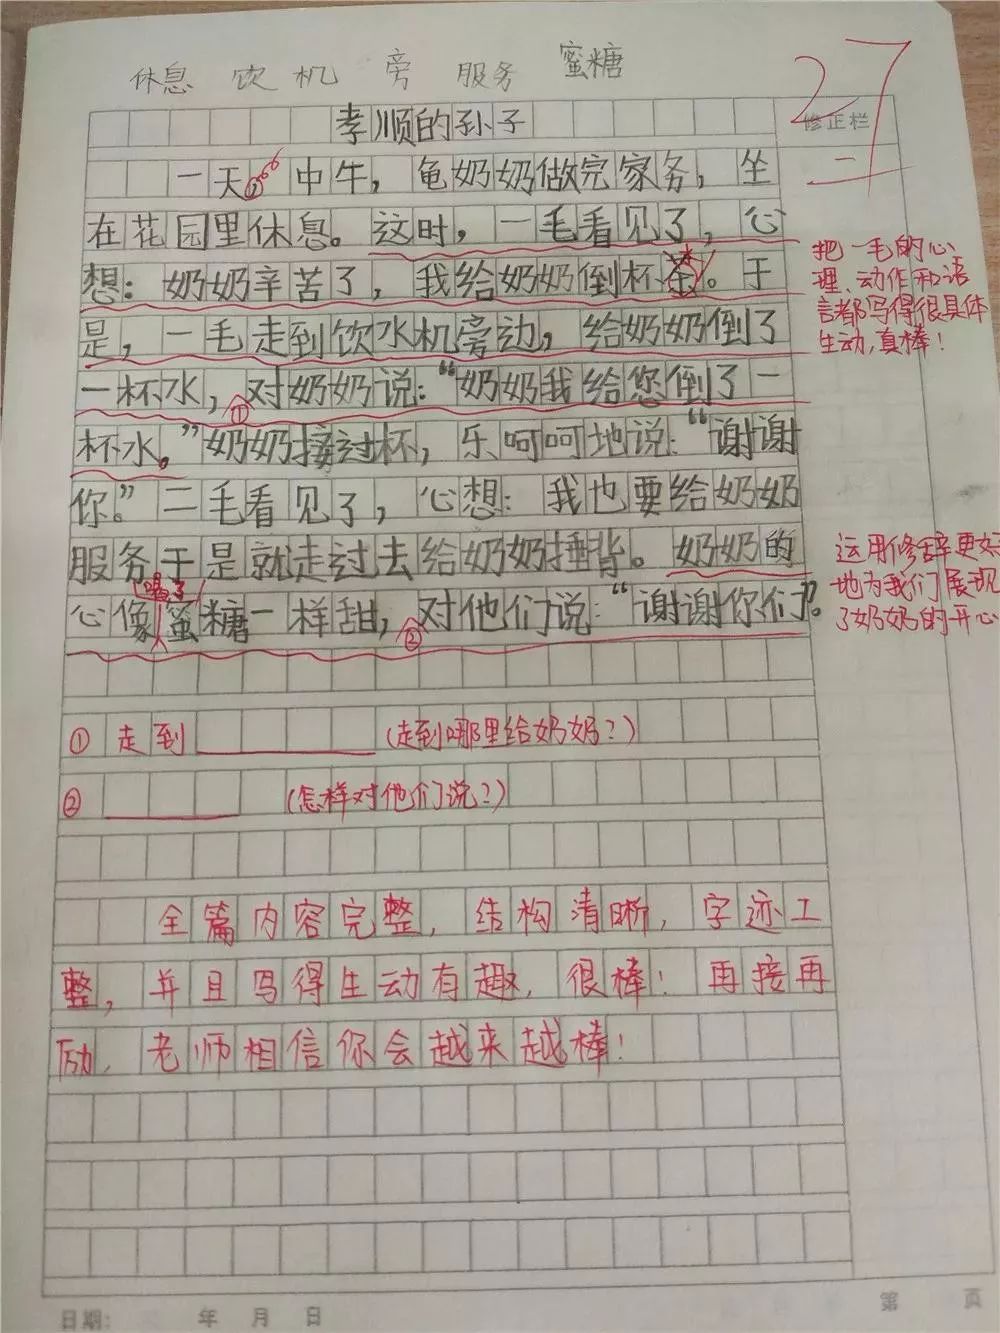 休息 饮 机 旁 服务 蜜糖
27
修正栏
孝顺的孙子
一天中牛，龟奶奶做完家务，坐
二
在花园里休息。这时，一毛看见了，心
想：奶奶辛苦了，我给奶奶倒杯茶。于
把一毛的心
理、动作和语
言都写得很具体
生动，真棒！
是，一毛走到饮水机旁边，给奶奶倒了
一杯水，对奶奶说：“奶奶我给您倒了一
①
杯水。”奶奶接过杯，乐呵呵地说：“谢谢
你。”二毛看见了，心想：我也要给奶奶
服务于是就走过去给奶奶捶背。奶奶的
喝了
心像蜜糖一样甜，对他们说：“谢谢你们”。
②
运用修辞更好
地为我们展现
了奶奶的开心
①走到（走到哪里给奶奶？）
②（怎样对他们说？）
全篇内容完整，结构清晰，字迹工
整，并且写得生动有趣，很棒！再接再
励，老师相信你会越来越棒！
日期： 年 月 日
第 页